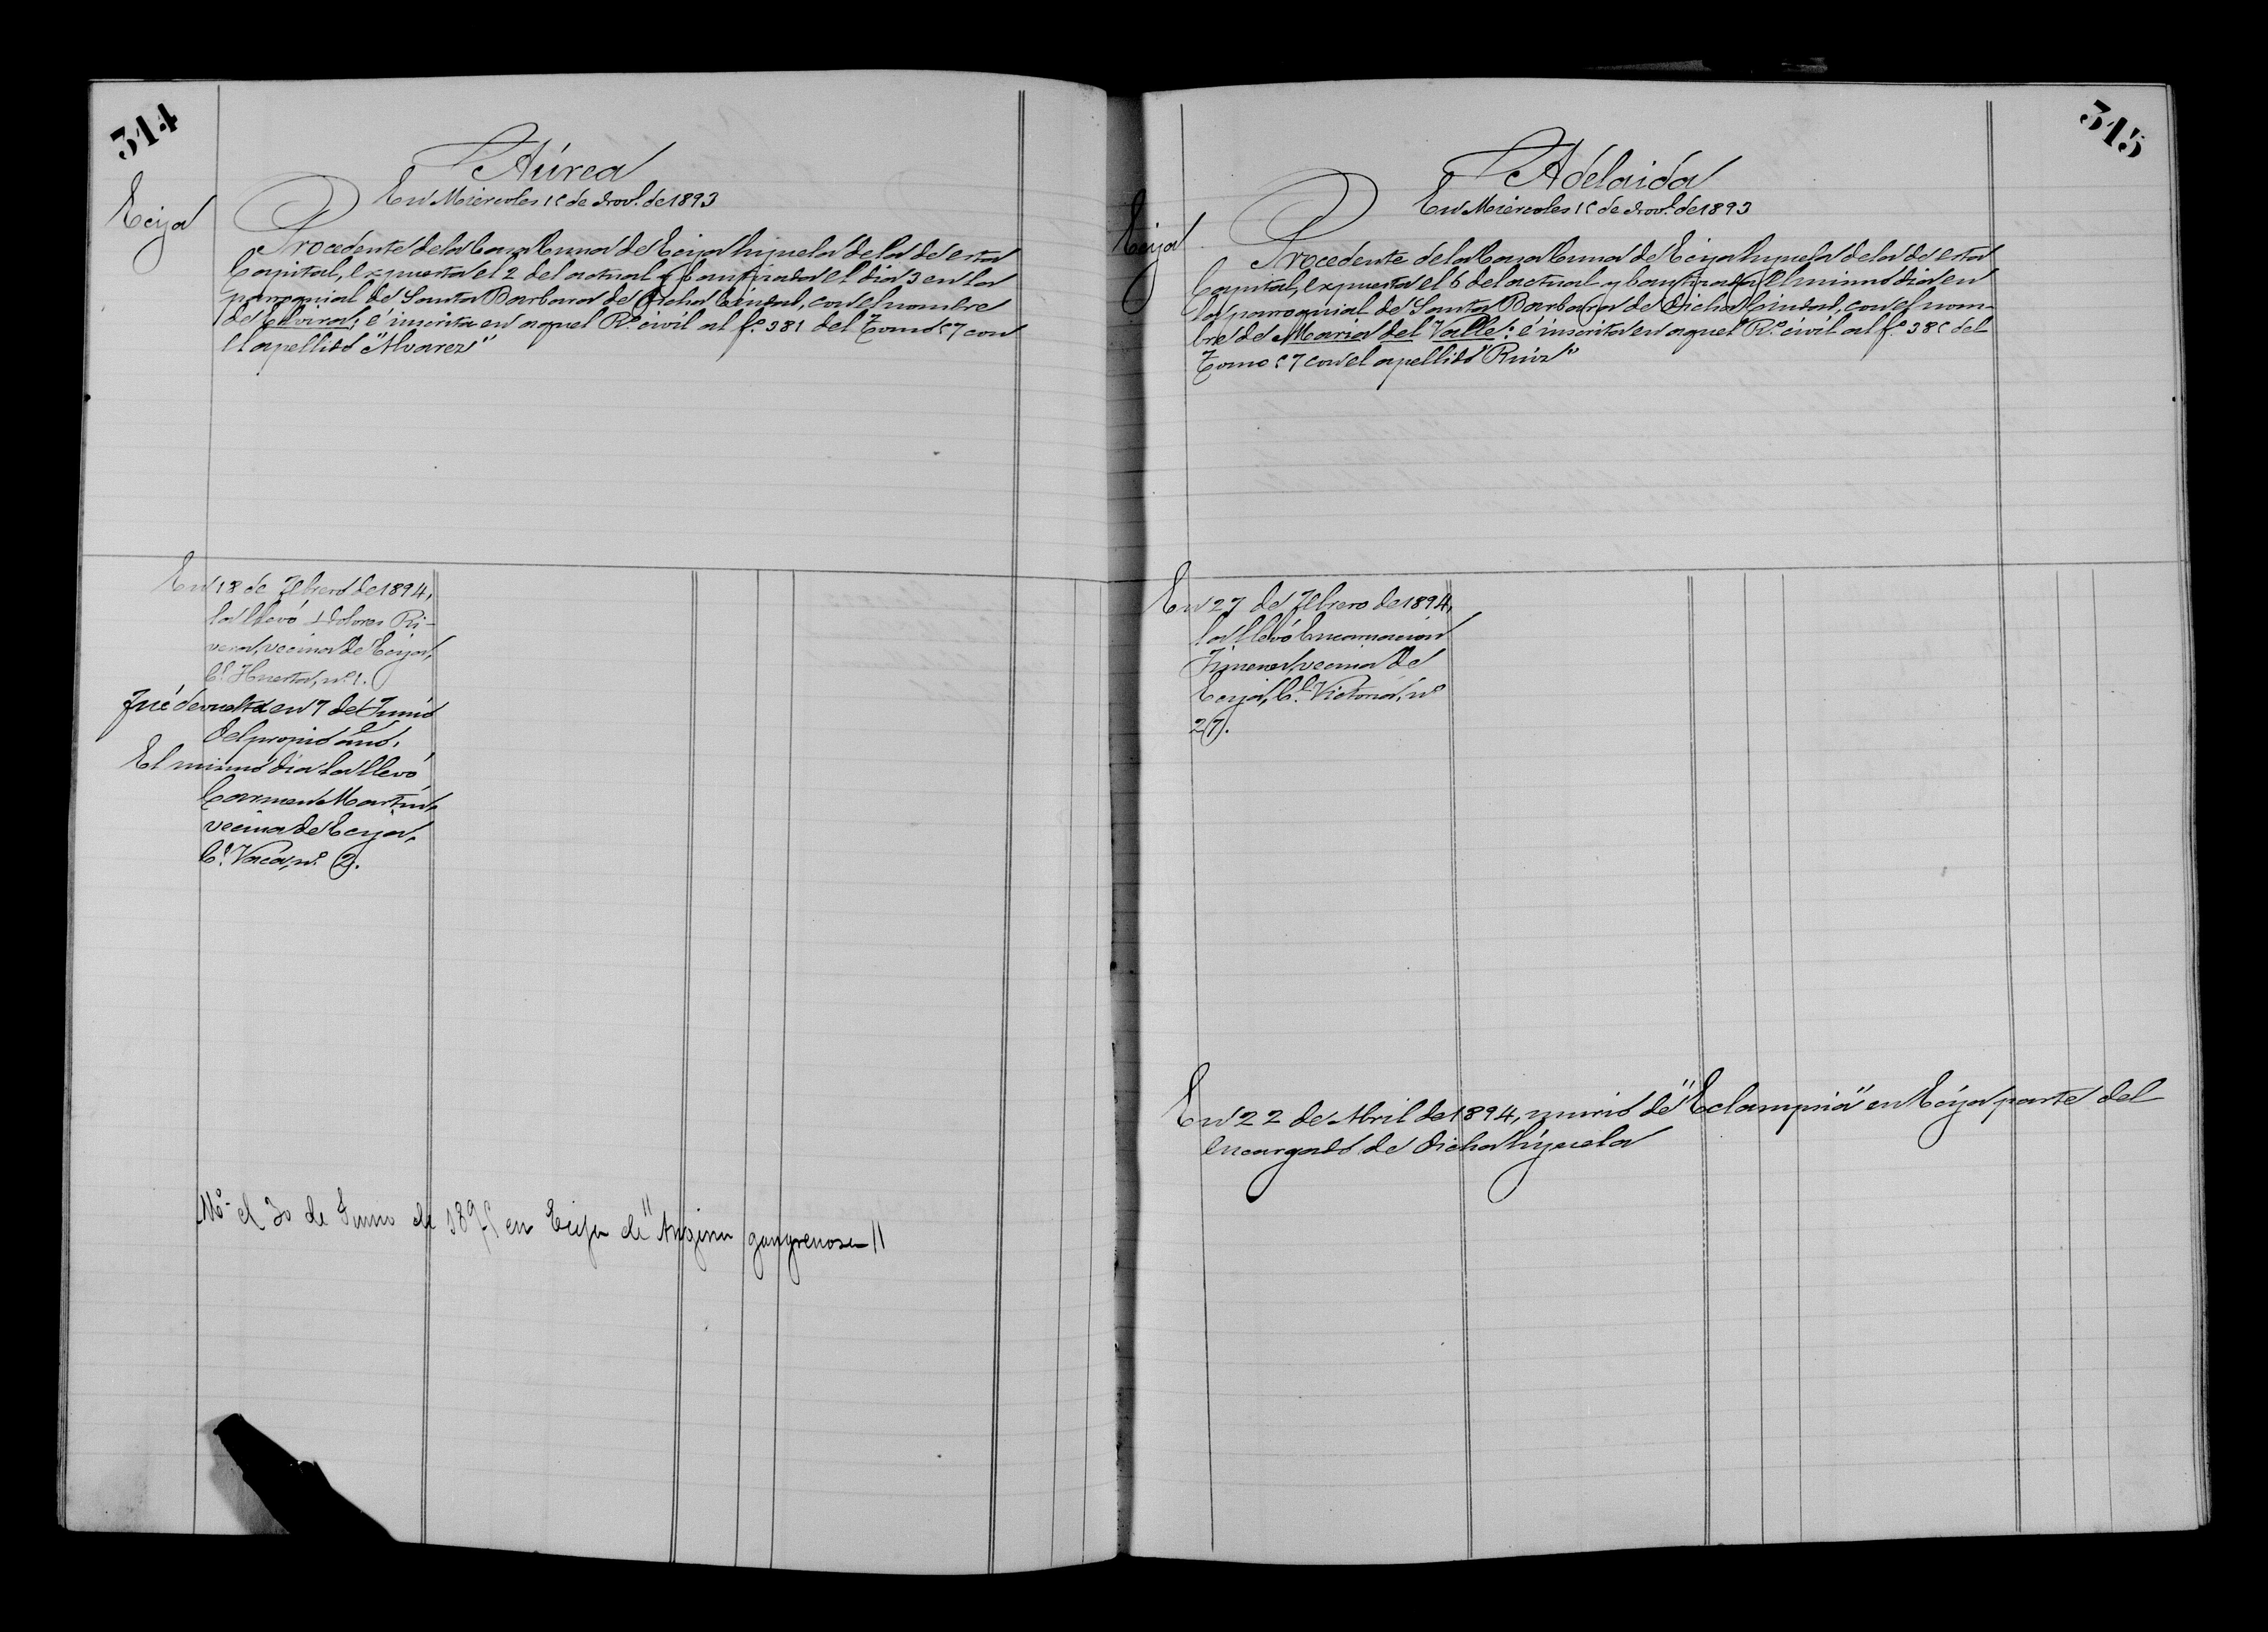 314
Aúrea
En Miercoles 15 de Novl. de 1893
Ecija
Procedente de la Casa Cuna de Ecija hijuela de la de esta
Capital, expuesta el 2 del actual y bautizada el dia 3 en la
parroquial de Santa Barbara de dicha Ciudad, con el nombre
de Elvira; é inscrita en aquel Rº civil al fº 381 del Tomo 57 con
el apellido "Alvarez"
En 18 de Febrero de 1894,
la llevó Dolores Ri-
vera, vecina de Ecija,
Cl. Huerta, nº 1.
Fué devuelta en 7 de Junio
del propio año.
El mismo dia la llevó
Carmen Martin,
vecina de Ecija,
Cl. Vaca, nº 2.
Mº el 30 de Junio de 1895 en Ecija de "Angina gangrenosa"
315
Adelaida
En Miercoles 15 de Novl. de 1893
Ecija
Procedente de la Casa Cuna de Ecija hijuela de la de esta
Capital, expuesta el 6 del actual y bautizada el mismo dia en
la parroquial de Santa Barbara de dicha Ciudad, con el nom-
bre de Maria del Valle; é inscrita en aquel Rº civil al fº 385 del
Tomo 57 con el apellido "Ruiz"
En 27 de Febrero de 1894,
la llevó Encarnacion
Jimenez, vecina de
Ecija, Cl. Victoria, nº
27.
En 22 de Abril de 1894, murió de "Eclampsia" en Ecija, parte del
encargado de dicha hijuela